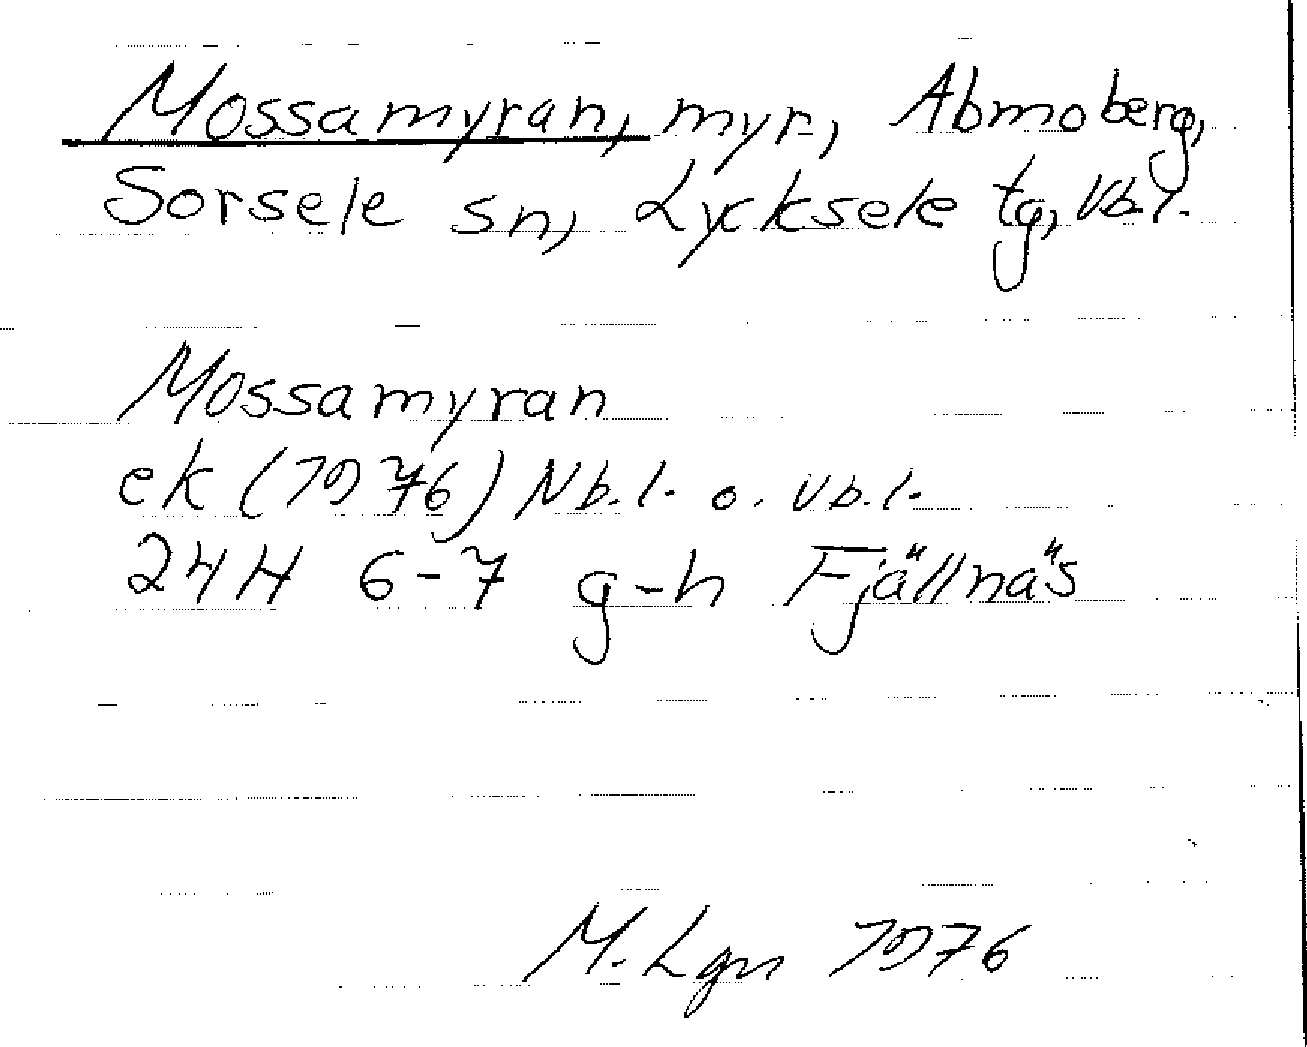 Mossamyran, myr, Abmoberg,
Sorsele sn, Lycksele tg, Vb.l.
Mossamyran
ek (1976) Nb.l. o. Vb.l.
24H 6-7 g-h Fjällnäs
M. Lgn 1976